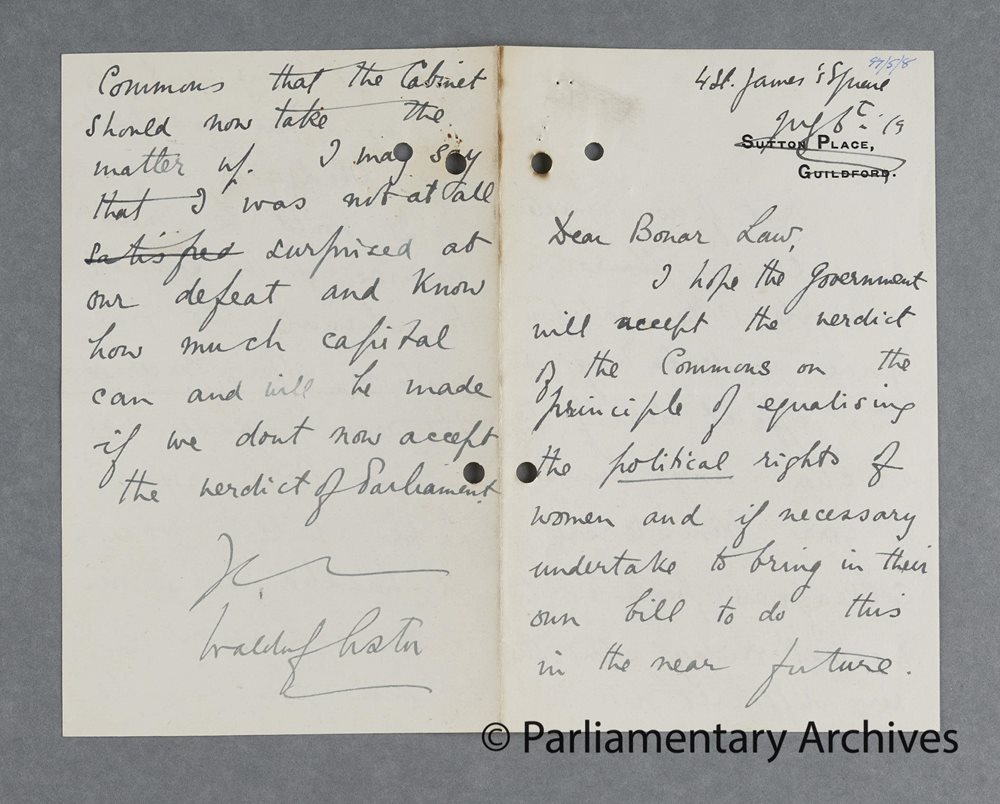 97/5/8
4 St. James's Square
July 6th 19
SUTTON PLACE,
GUILDFORD.
Dear Bonar Law,
I hope the Government
will accept the verdict
of the Commons on the
principle of equalising
the political rights of
women and if necessary
undertake to bring in their
own bill to do this
in the near future.
Commons that the Cabinet
should now take the
matter up. I may say
that I was not at all
satisfied surprised at
our defeat and know
how much capital
can and will be made
if we dont now accept
the verdict of Parliament
Waldorf Astor
© Parliamentary Archives